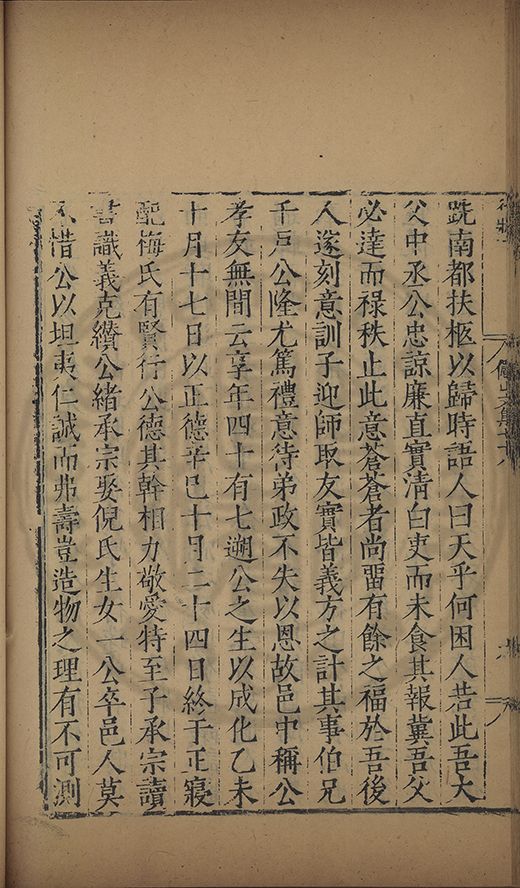 跣南都扶柩以歸時語人曰天乎何困人若此吾大
父中丞公忠諒廉直實清白吏而未食其報冀吾父
必達而祿秩止此意蒼蒼者尚畱有餘之福於吾後
人遂刻意訓子迎師取友實皆義方之計其事伯兄
千戶公隆尤篤禮意待弟政不失以恩故邑中稱公
孝友無間云享年四十有七遡公之生以成化乙未
十月十七日以正德辛巳十月二十四日終于正寢
配梅氏有賢行公德其幹相力敬愛特至子承宗讀
書識義克纘公緒承宗娶倪氏生女一公卒邑人莫
不惜公以坦夷仁誠而弗壽豈造物之理有不可測